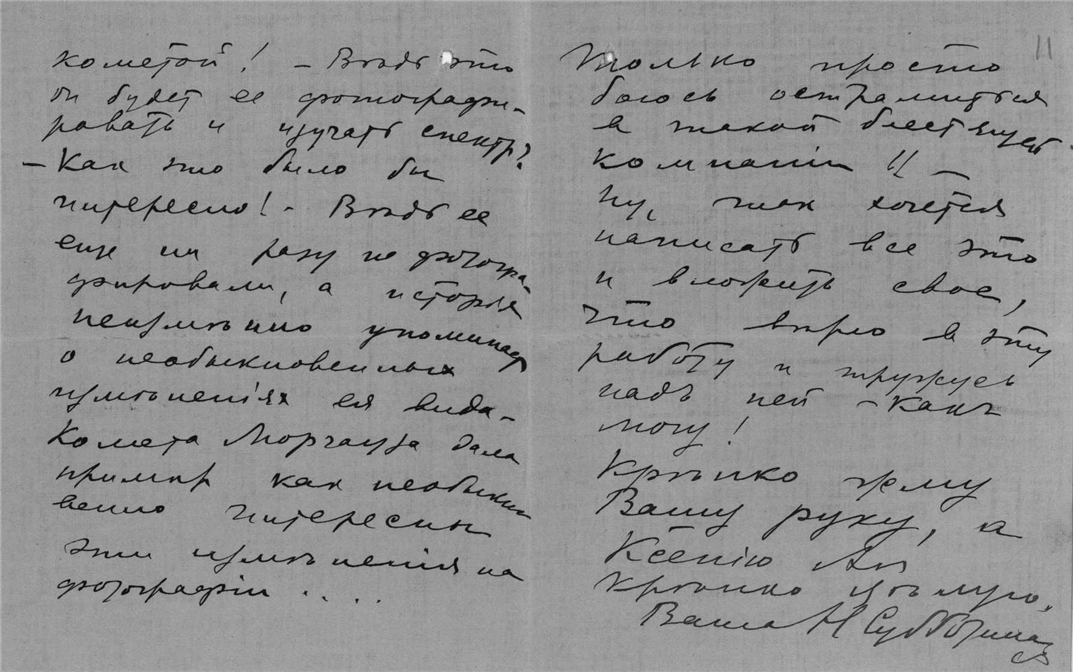 кометой! – Вѣдь это
он будет ее фотографи-
ровать и изучать спектр?
– Как это было бы
интересно! – Вѣдь ее
еще ни разу не фотогра-
фировали, а история
неизмѣнно упоминает
о необыкновенных
измѣненiях ея вида –
Комета Морхауза дала
примѣр как необыкно
венно интересны
эти измѣненiя на
фотографiи . . . .
11
Только просто
боюсь осрамиться
в такой блестящей
компанiи !!
Ну, так хочется
написать все это
и вложить свое,
что вѣрю в эту
работу и тружусь
надъ ней – какъ
могу!
Крѣпко жму
Вашу руку, а
Ксенiю Ал
крѣпко цѣлую.
Ваша Н Субботина